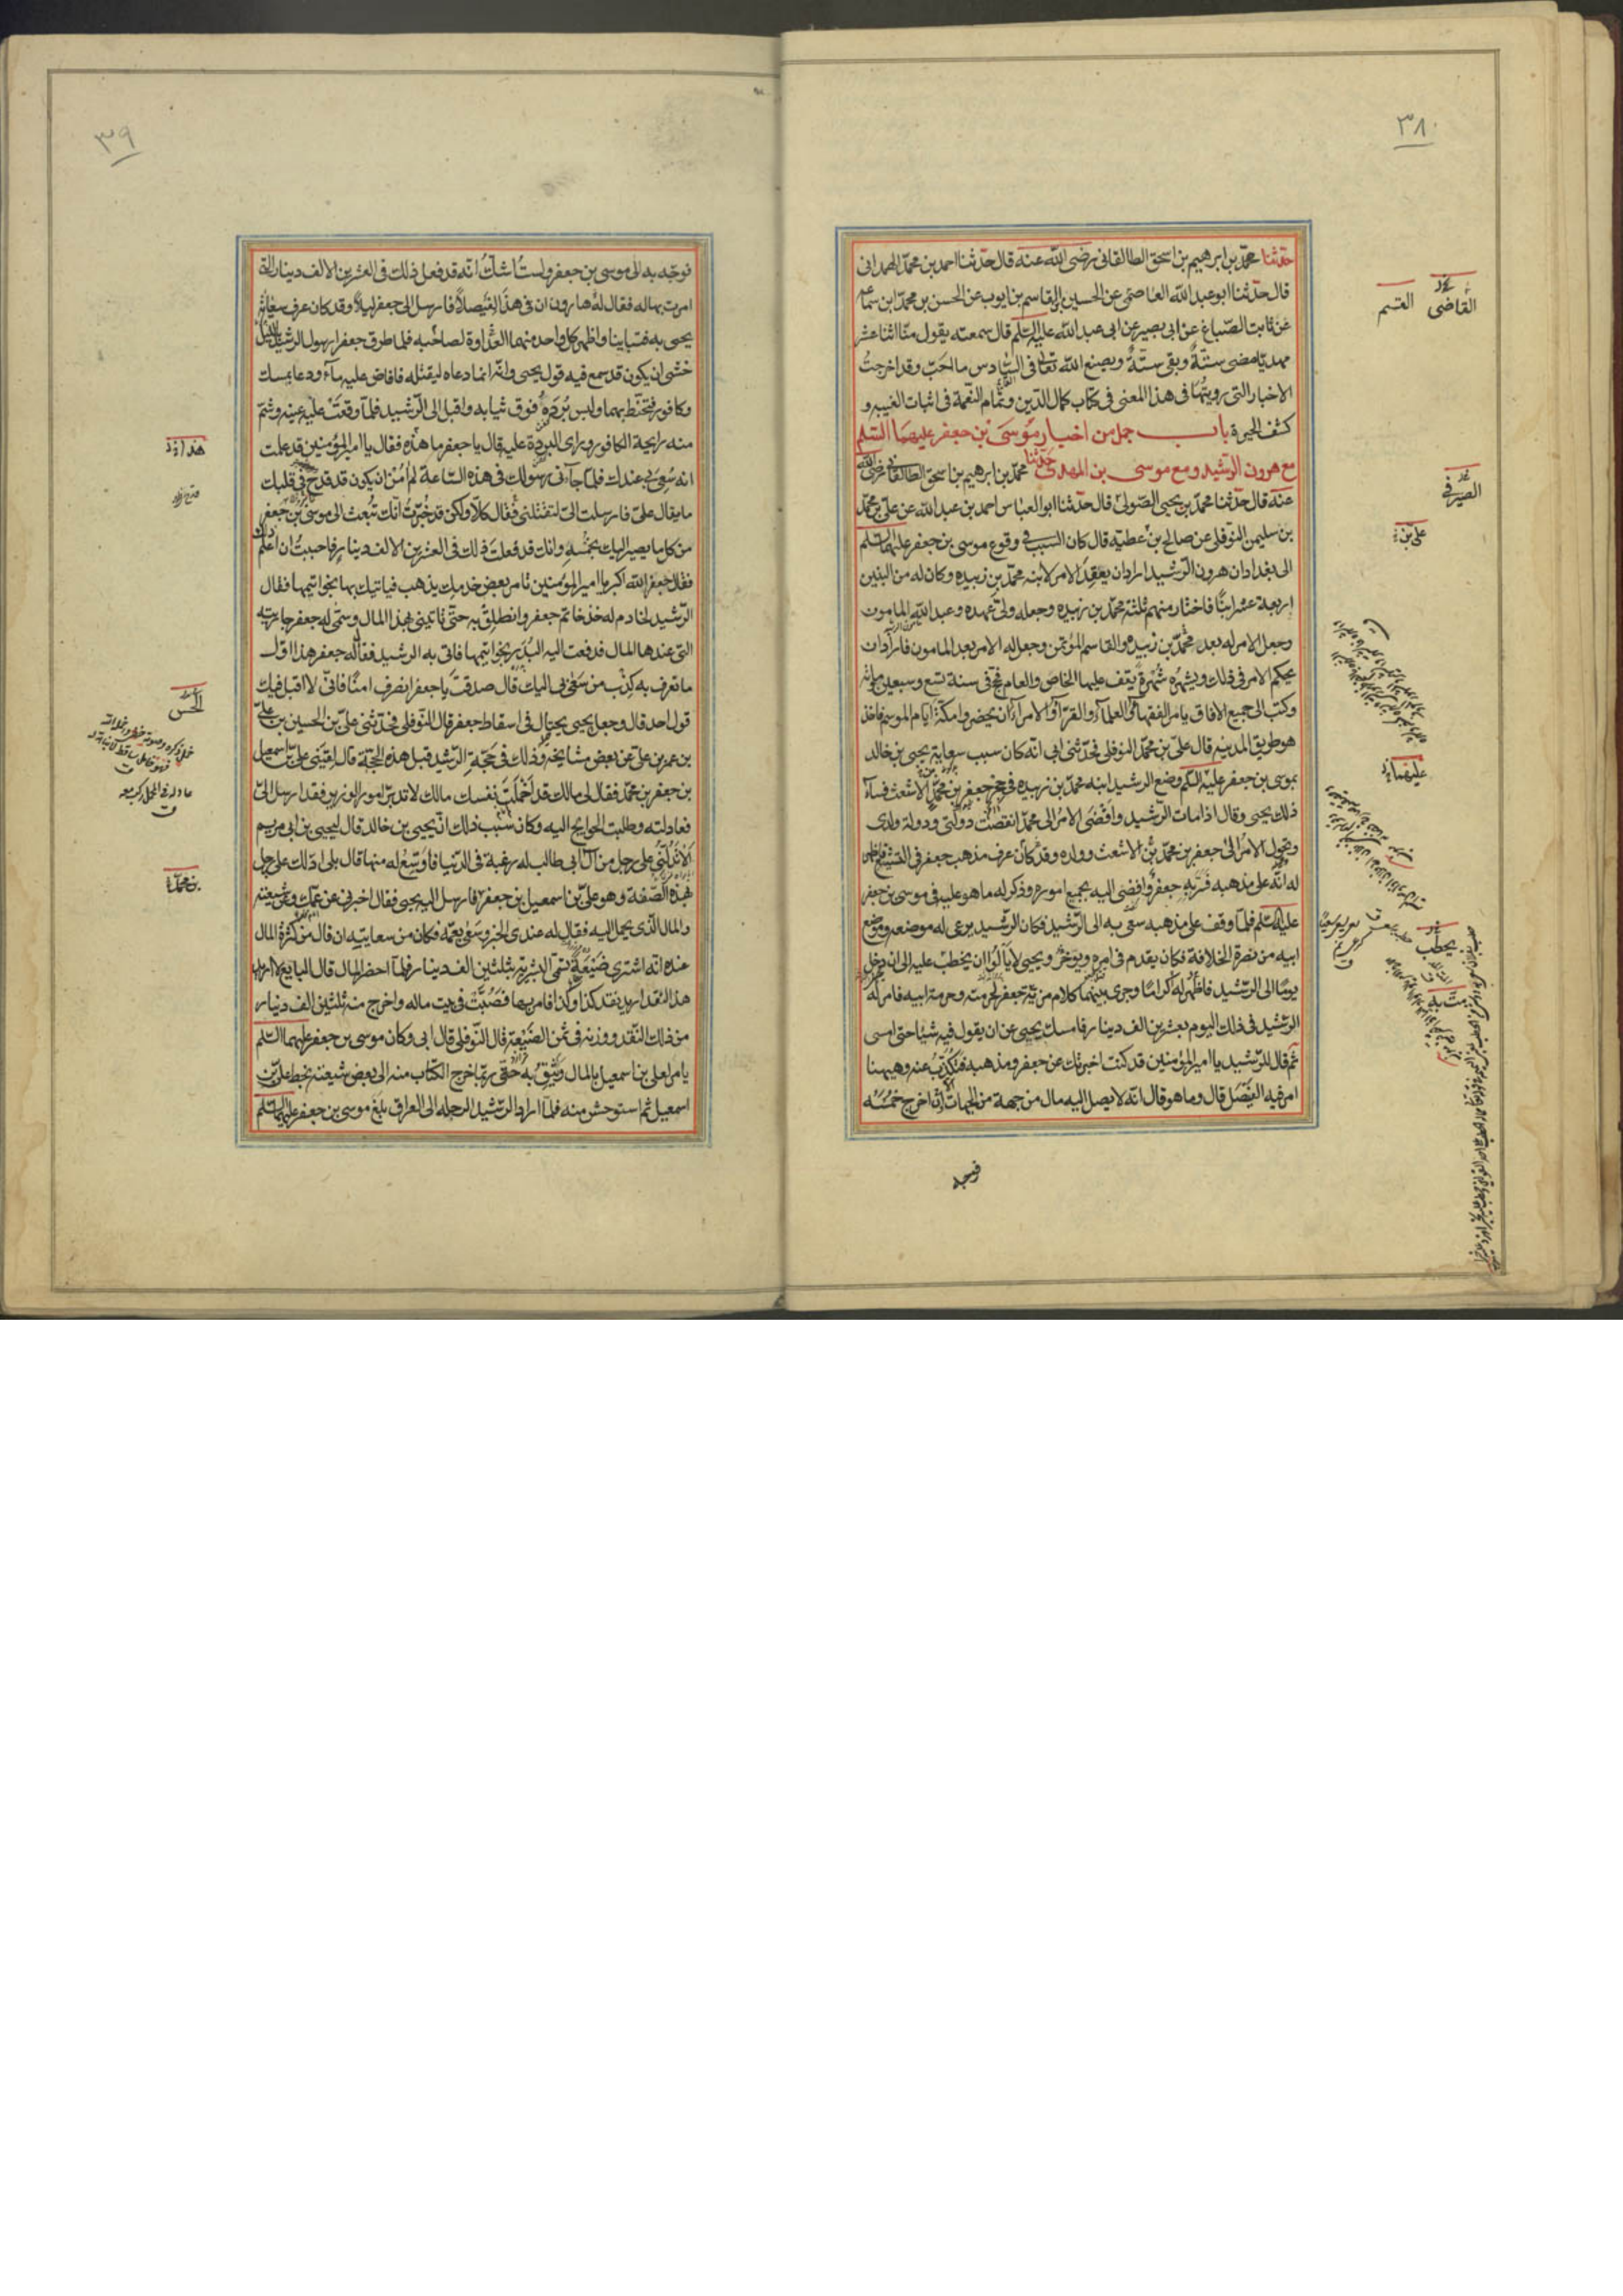 ٣٨
حدثنا محمد بن ابرهيم بن اسحق الطالقانى رضى الله عنه قال حدثنا احمد بن محمد الهمدانى
قال حدثنا ابو عبد الله العاصمى عن الحسين بن القاسم بن ايوب عن الحسن بن محمد بن سماعه
عن ثابت الصباغ عن ابى بصير عن ابى عبد الله عليه السلم قال سمعته يقول منا اثنا عشر
مهديا مضى ستة وبقى ستة ويصنع الله تعالى فى السادس ما احب وقد اخرجت
الاخبار التى رويتها فى هذا المعنى فى كتاب كمال الدين وتمام النعمة فى اثبات الغيبه و
كشف الحيرة باب جمل من اخبار موسى بن جعفر عليهما السلم
مع هرون الرشيد ومع موسى بن المهدى حدثنا محمد بن ابرهيم بن اسحق الطالقانى رضى الله
عنه قال حدثنا محمد بن يحيى الصولى قال حدثنا ابو العباس احمد بن عبد الله عن على بن محمد
بن سليمن النوفلى عن صالح بن عطيه قال كان السبب فى وقوع موسى بن جعفر عليهما السلم
الى بغداد ان هرون الرشيد اراد ان يعقد الامر لابنه محمد بن زبيده وكان له من البنين
اربعة عشر ابنا فاختار منهم ثلثة محمد بن زبيده وجعله ولى عهده وعبد الله المامون
وجعل الامر له بعد محمد بن زبيده والقاسم المؤتمن وجعل له الامر بعد المامون فاراد ان
يحكم الامر فى ذلك ويشهره شهرة يقف عليها الخاص والعام فحج فى سنة تسع وسبعين ومائه
وكتب الى جميع الافاق يامر الفقهاء والعلماء والقراء والامراء ان يحضروا مكة ايام الموسم فاخذ
هو طريق المدينه قال على بن محمد النوفلى فحدثنى ابى انه كان سبب سعاية يحيى بن خالد
بموسى بن جعفر عليه السلم وضع الرشيد ابنه محمد بن زبيده فى حجر جعفر بن محمد بن الاشعث فساء
ذلك يحيى وقال اذا مات الرشيد وافضى الامر الى محمد انقضت دولتى ودولة ولدى
وتحول الامر الى جعفر بن محمد بن الاشعث وولده وقد كان عرف مذهب جعفر فى التشيع فاظهر
له انه على مذهبه فسر به جعفر وافضى اليه بجميع اموره وذكر له ما هو عليه فى موسى بن جعفر
عليه السلم فلما وقف على مذهبه سعى به الى الرشيد فكان الرشيد يرعى له موضعه وموضع
ابيه من نصرة الخلافة فكان يقدم فى امره ويؤخر ويحيى لا يألوا ان يخطب عليه الى ان دخل
يوما الى الرشيد فاظهر له اكراما وجرى بينهما كلام مزية جعفر لحرمته وحرمة ابيه فامر له
الرشيد فى ذلك اليوم بعشرين الف دينار فامسك يحيى عن ان يقول فيه شيئا حتى امسى
ثم قال للرشيد يا امير المؤمنين قد كنت اخبرتك عن جعفر ومذهبه فتكذب عنه وهيهنا
امر فيه الفيصل قال وما هو قال انه لا يصل اليه مال من جهة من الجهات الا اخرج خمسه
فوجه
القاضى
القسم
الصيرفى
على بن
عليهما
يحطب
٣٩
فوجه به الى موسى بن جعفر ولست اشك انه قد فعل ذلك فى العشرين الالف دينار التى
امرت بها له فقال له هارون ان فى هذا لفيصلا فارسل الى جعفر ليلا وقد كان عرف سعاية
يحيى به فتباينا واظهر كل واحد منهما العداوة لصاحبه فلما طرق جعفرا رسول الرشيد بالليل
خشى ان يكون قد سمع فيه قول يحيى وانه انما دعاه ليقتله فافاض عليه ماء ودعا بمسك
وكافور فتحنط بهما ولبس برده فوق ثيابه واقبل الى الرشيد فلما وقعت عليه عينه وشم
منه رايحة الكافور وراى البردة عليه قال يا جعفر ما هذه فقال يا امير المؤمنين قد علمت
انه سعى بى عندك فلما جاءنى رسولك فى هذه الساعة لم امن ان يكون قد قدح فى قلبك
ما يقال على فارسلت الى لتقتلنى فقال كلا ولكن قد خبرت انك تبعث الى موسى بن جعفر
من كل ما يصير اليك بخمسه وانك قد فعلت ذلك فى العشرين الالف دينار فاحببت ان اعلم ذلك
فقال جعفر الله اكبر يا امير المؤمنين تامر بعض خدمك يذهب فياتيك بها بخواتيمها فقال
الرشيد لخادم له خذ خاتم جعفر وانطلق به حتى تاتينى بهذا المال وسمى له جعفر جاريته
التى عندها المال فدفعت اليه البدر بخواتيمها فاتى به الرشيد فقال له جعفر هذا اول
ما تعرف به كذب من سعى بى اليك قال صدقت يا جعفر انصرف امنا فانى لا اقبل فيك
قول احد قال وجعل يحيى يحتال فى اسقاط جعفر قال النوفلى فحدثنى على بن الحسين بن على
بن عمر بن على عن بعض مشايخه وذلك فى حجة الرشيد قبل هذه الحجة قال لقينى على بن اسمعيل
بن جعفر بن محمد فقال لى مالك قد اخملت نفسك مالك لا تدبر امور الوزير فقد ارسل الى
فعادلته وطلبت الحوايج اليه وكان سبب ذلك ان يحيى بن خالد قال ليحيى بن ابى مريم
الا تدلنى على رجل من آل ابى طالب له رغبة فى الدنيا فاوسع له منها قال بلى ادلك على رجل
بهذه الصفة وهو على بن اسمعيل بن جعفر فارسل اليه يحيى فقال اخبرنى عن عمك وعن شيعته
والمال الذى يحمل اليه فقال له عندى الخبر وسعى بعمه فكان من سعايته ان قال من كثرة المال
عنده انه اشترى ضيعة تسمى البشرية بثلثين الف دينار فلما احضر المال قال البايع لا اريد
هذا النقد اريد نقد كذا وكذا فامر بها فصبت فى بيت ماله واخرج منه ثلثين الف دينار
من ذلك النقد ووزنه فى ثمن الضيعة قال النوفلى قال ابى وكان موسى بن جعفر عليهما السلم
يامر لعلى بن اسمعيل بالمال ويثق به حتى ربما خرج الكتاب منه الى بعض شيعته بخط على بن
اسمعيل ثم استوحش منه فلما اراد الرشيد الرحله الى العراق بلغ موسى بن جعفر عليهما السلم
هذا
الحسن
بن محمد